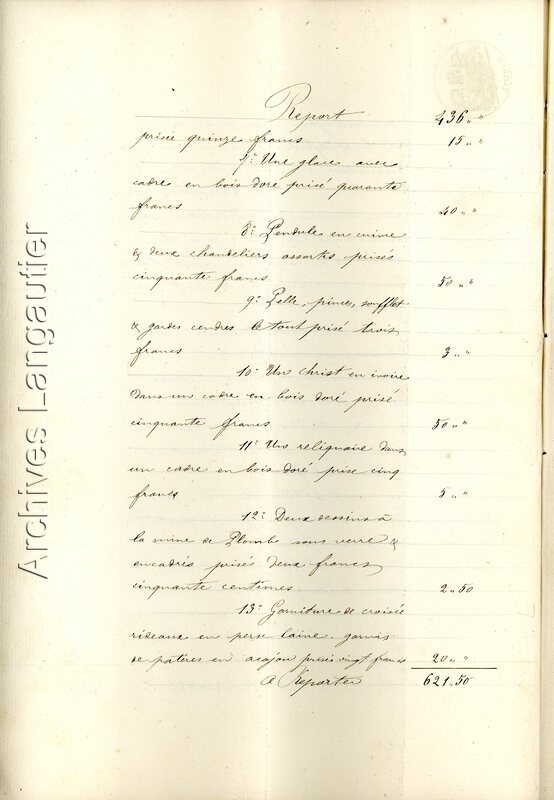 Report 436 „ "
prisée quinze francs 15 „ "
7° Une glace avec
cadre en bois doré prisé quarante
francs 40 „ "
8° Pendule en cuivre
& deux chandeliers assortis prisés
cinquante francs 50 „ "
9° Pelle, pince, soufflet
& gardes cendres le tout prisé trois
francs 3 „ "
10° Un christ en ivoire
dans un cadre en bois doré prisé
cinquante francs 50 „ "
11° Un reliquaire dans
un cadre en bois doré prisé cinq
francs 5 „ "
12° Deux dessins à
la mine de Plomb sous verre &
encadrés prisés deux francs
cinquante centimes 2 „ 50
13° Garniture de croisée
rideaux en perse laine, garnis
de patères en acajou prisés vingt francs 20 „ "
A Reporter 621 „ 50
Archives Langautier